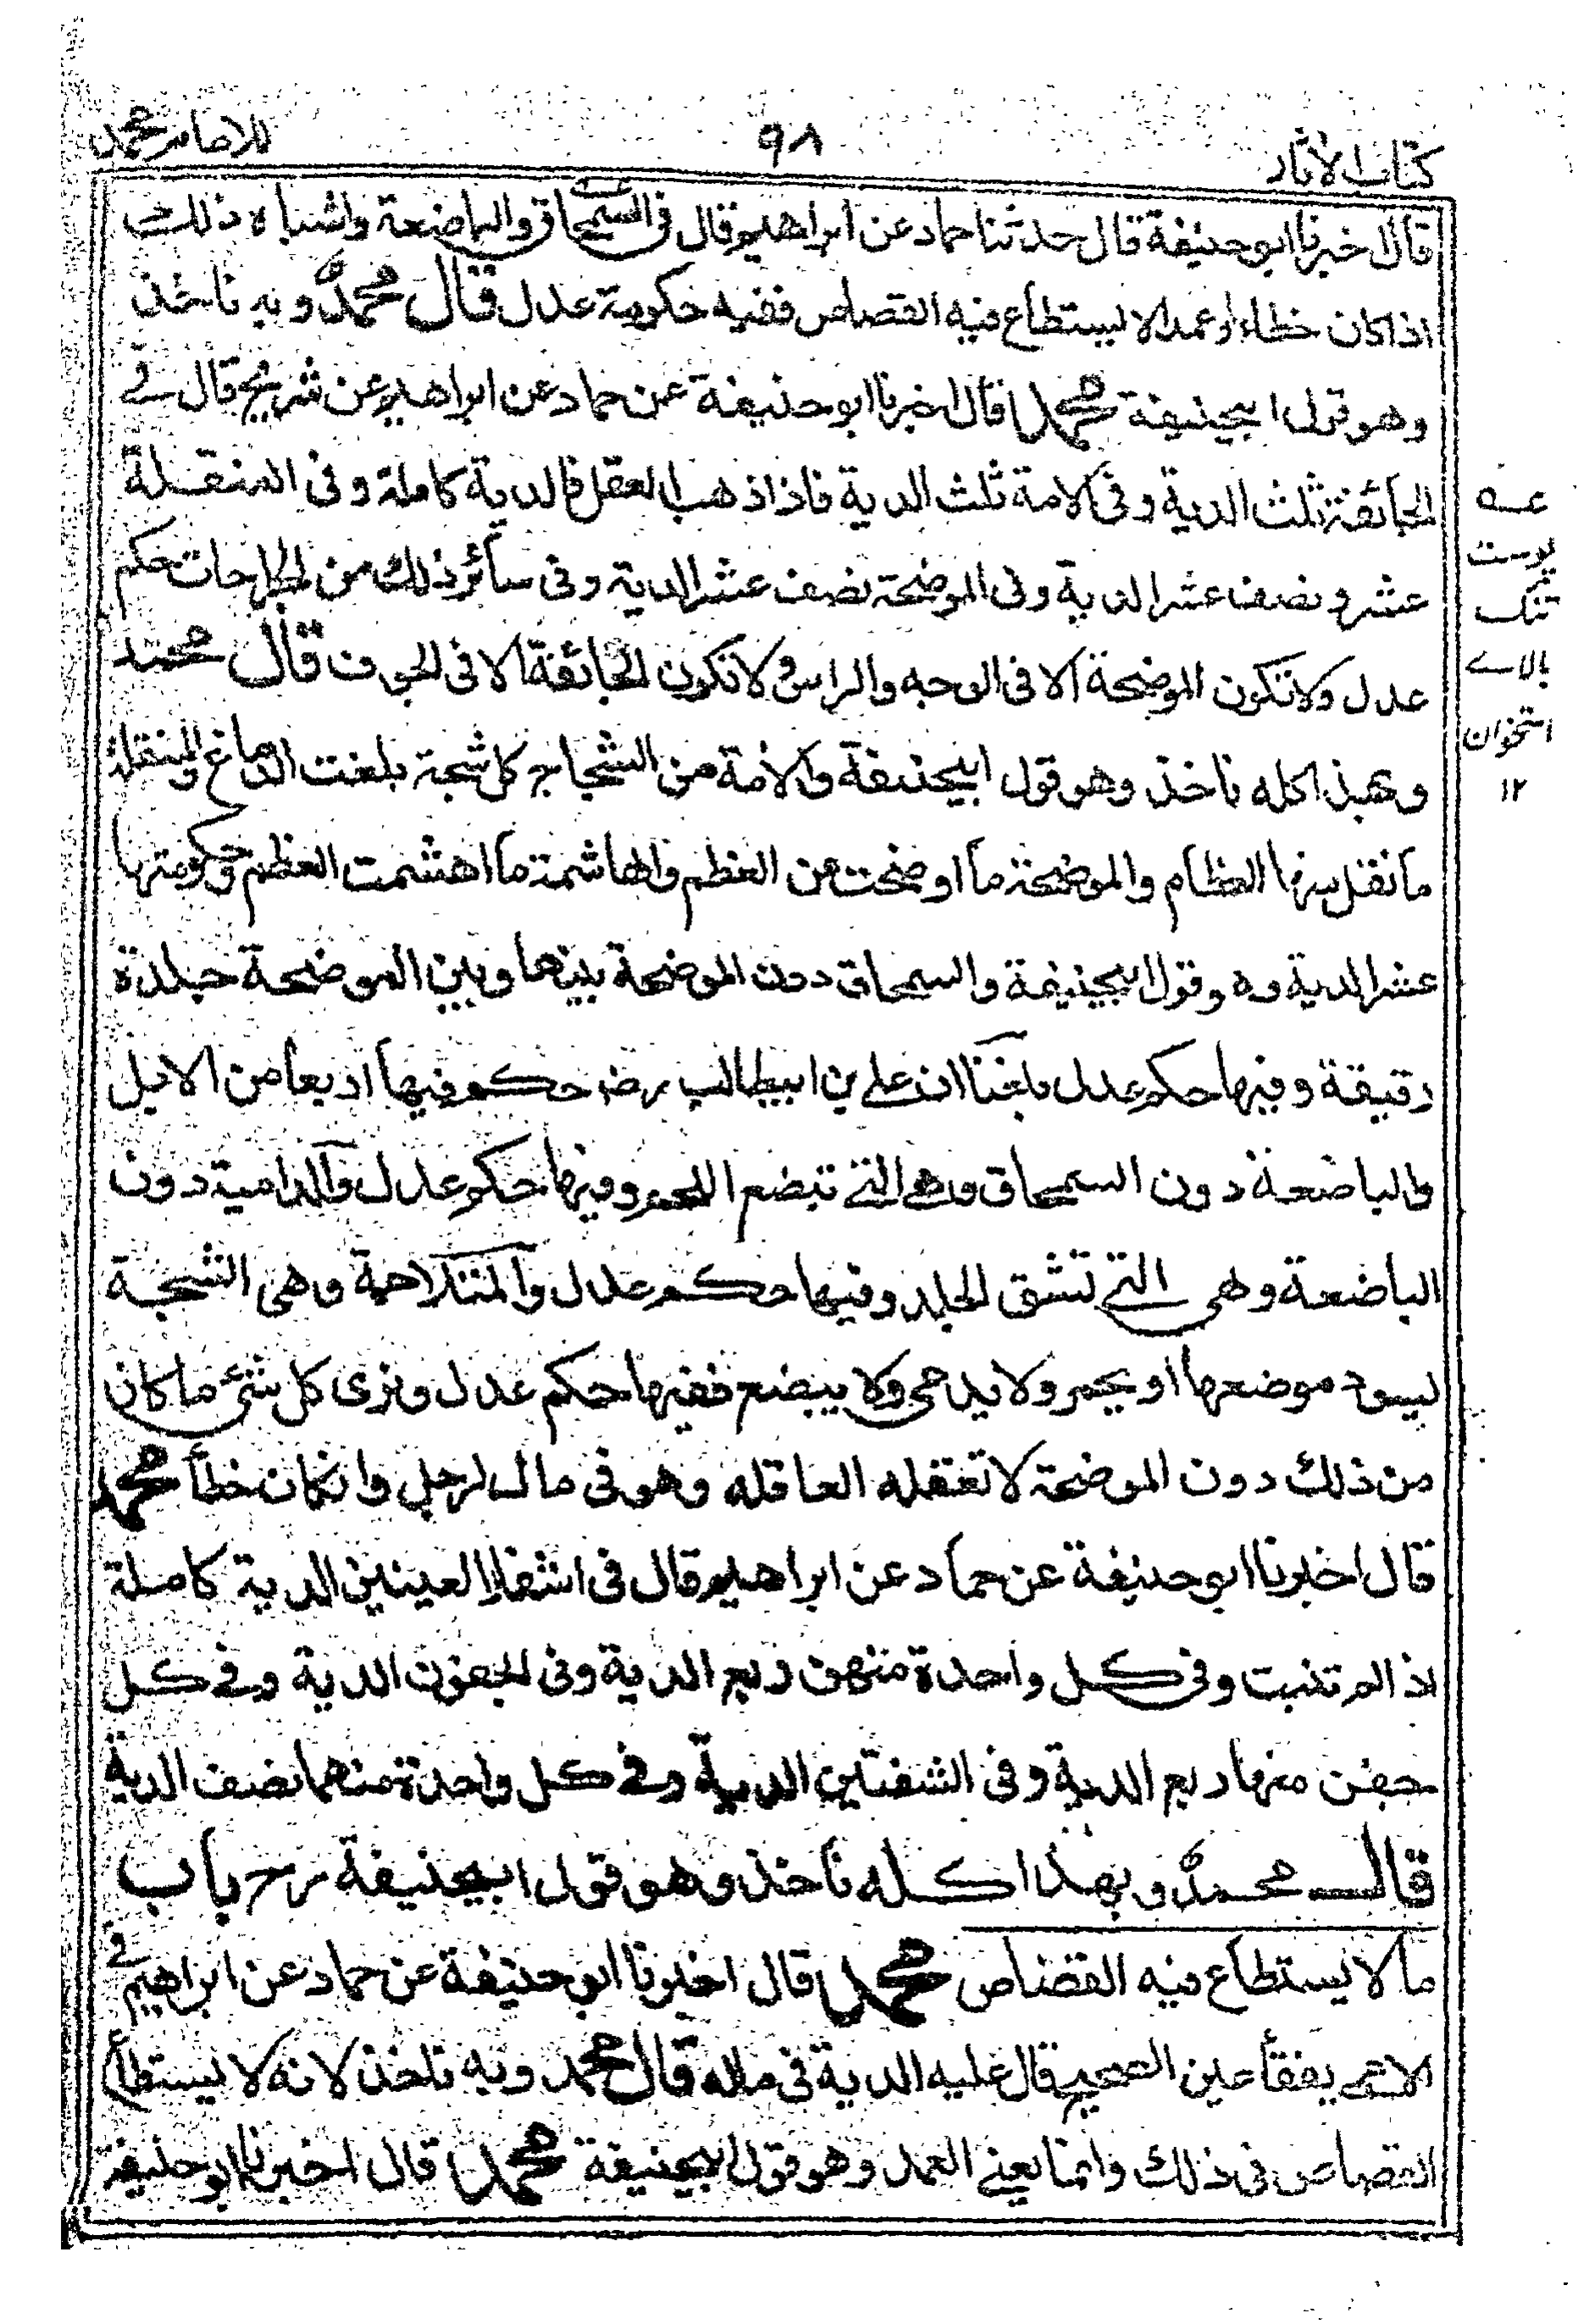 كتاب الاثار
٩٨
للامام محمد
قال اخبرنا ابوحنيفة قال حدثنا حماد عن ابراهيم قال فى السمحاق والباضعة واشباه ذلك
اذا كان خطاء او عمدا لا يستطاع فيه القصاص ففيه حكومة عدل قال محمد وبه ناخذ
وهو قول ابيحنيفة محمد قال اخبرنا ابوحنيفة عن حماد عن ابراهيم عن شريح قال فى
الجائفة ثلث الدية وفى الامة ثلث الدية فاذا ذهب العقل فالدية كاملة وفى المنقلة
عشر ونصف عشر الدية وفى الموضحة نصف عشر الدية وفى سائر ذلك من الجراحات حكم
عدل ولا تكون الموضحة الا فى الوجه والراس ولا تكون الجائفة الا فى الجوف قال محمد
وبهذا كله ناخذ وهو قول ابيحنيفة والامة من الشجاج كل شجة بلغت الدماغ والمنقلة
ما نقل منها العظام والموضحة ما اوضحت عن العظم والهاشمة ما اهشمت العظم وحكومتها
عشر الدية وهو قول ابيحنيفة والسمحاق دون الموضحة بينها وبين الموضحة جلدة
رقيقة وفيها حكم عدل بلغنا ان على بن ابيطالب رض حكم فيها اربعا من الابل
والباضعة دون السمحاق وهى التى تبضع اللحم وفيها حكم عدل والدامية دون
الباضعة وهى التى تشق الجلد وفيها حكم عدل والمتلاحمة وهى الشجة
ليسود موضعها او يحمر ولا يدمى ولا يبضع ففيها حكم عدل ونرى كل شئ ما كان
من ذلك دون الموضحة لا تعقله العاقله وهو فى مال الرجل وانكان خطأ محمد
قال اخبرنا ابوحنيفة عن حماد عن ابراهيم قال فى اشفار العينين الدية كاملة
اذا لم تنبت وفى كل واحدة منهن ربع الدية وفى الجفون الدية وفى كل
جفن منها ربع الدية وفى الشفتين الدية وفى كل واحدة منهما نصف الدية
قال محمد وبهذا كله ناخذ وهو قول ابيحنيفة رح باب
ما لا يستطاع فيه القصاص محمد قال اخبرنا ابوحنيفة عن حماد عن ابراهيم فى
الاعمى يفقأ عين الصحيح قال عليه الدية فى ماله قال محمد وبه ناخذ لانه لا يستطاع
القصاص فى ذلك وانما يعنى العمد وهو قول ابيحنيفة محمد قال اخبرنا ابوحنيفة
عــه
پوست
تنک
بالاے
استخوان
١٢